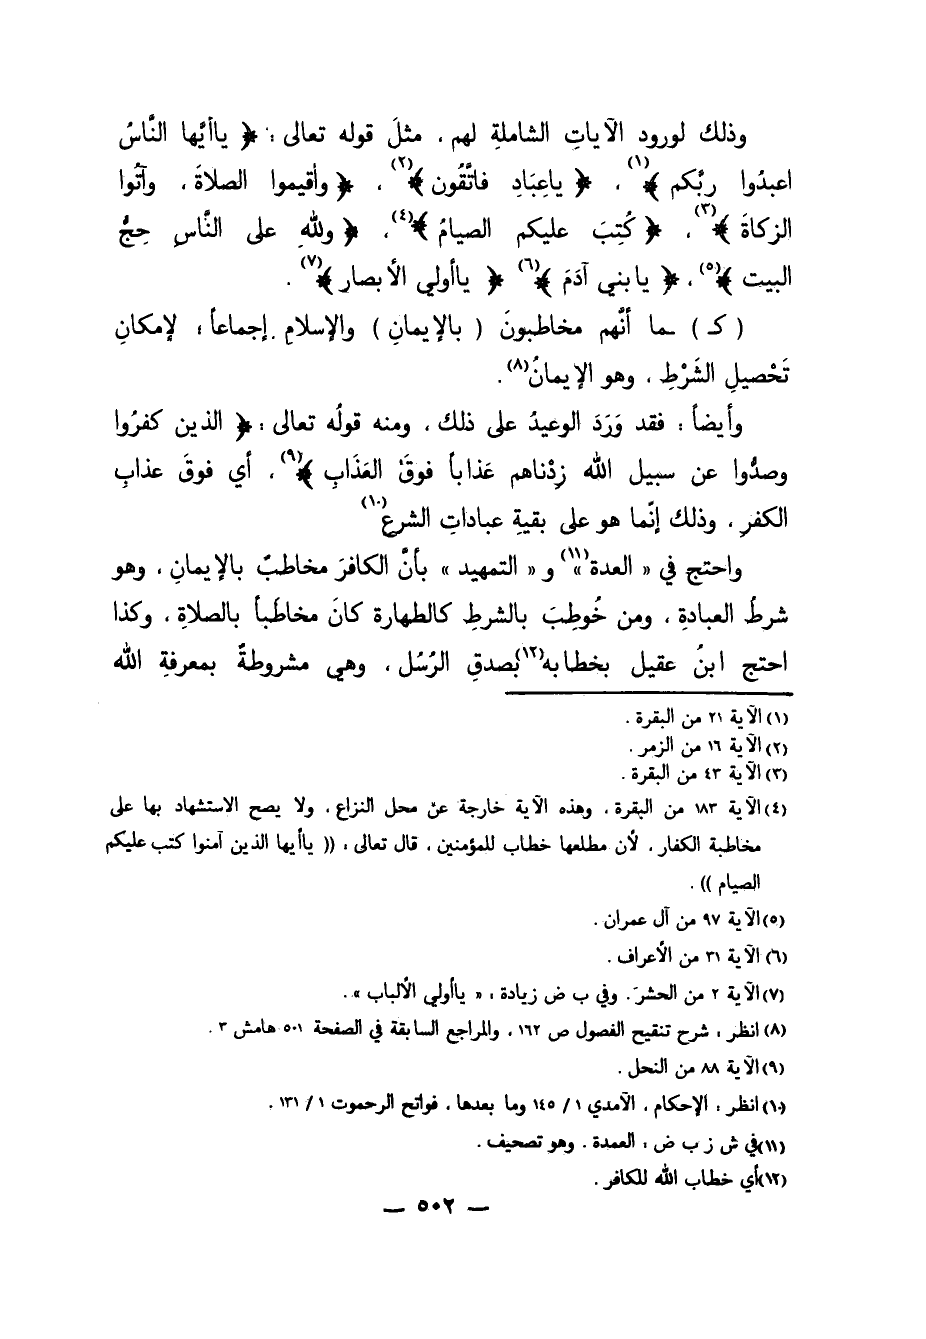 وذلك لورود الآياتِ الشاملةِ لهم ، مثلَ قوله تعالى : ﴿ ياأيُّها النَّاسُ
اعبدُوا ربُّكم ﴾(١) ، ﴿ ياعِبَادِ فاتَّقُون ﴾(٢) ، ﴿ وأقيموا الصلاةَ ، وآتُوا
الزكاةَ ﴾(٣) ، ﴿ كُتِبَ عليكم الصيامُ ﴾(٤) ، ﴿ وللهِ على النَّاسِ حِجُّ
البيت ﴾(٥) ، ﴿ يابني آدَمَ ﴾(٦) ﴿ ياأولي الأبصار ﴾(٧) .
( كـ ) ـما أنَّهم مخاطبونَ ( بالإيمانِ ) والإسلامِ إجماعاً ؛ لإمكانِ
تَحْصيلِ الشَرْطِ ، وهو الإيمانُ(٨) .
وأيضاً : فقد وَرَدَ الوعيدُ على ذلك ، ومنه قولُه تعالى : ﴿ الذين كفرُوا
وصدُّوا عن سبيل الله زِدْناهم عَذاباً فوقَ العَذَابِ ﴾(٩) ، أي فوقَ عذابِ
الكفرِ ، وذلك إنّما هو على بقيةِ عباداتِ الشرعِ(١٠)
واحتج في « العدة »(١١) و « التمهيد » بأنَّ الكافرَ مخاطبٌ بالإيمانِ ، وهو
شرطُ العبادةِ ، ومن خُوطِبَ بالشرطِ كالطهارة كانَ مخاطَباً بالصلاةِ ، وكذا
احتج ابنُ عقيل بخطابه(١٢) بصدقِ الرُسُل ، وهي مشروطةٌ بمعرفةِ الله
(١) الآية ٢١ من البقرة .
(٢) الآية ١٦ من الزمر .
(٣) الآية ٤٣ من البقرة .
(٤) الآية ١٨٣ من البقرة ، وهذه الآية خارجة عن محل النزاع ، ولا يصح الاستشهاد بها على
مخاطبة الكفار ، لأن مطلعها خطاب للمؤمنين ، قال تعالى : (( ياأيها الذين آمنوا كتب عليكم
الصيام )) .
(٥) الآية ٩٧ من آل عمران .
(٦) الآية ٣١ من الأعراف .
(٧) الآية ٢ من الحشر . وفي ب ض زيادة : « ياأولي الألباب » .
(٨) انظر : شرح تنقيح الفصول ص ١٦٢ ، والمراجع السابقة في الصفحة ٥٠١ هامش ٣ .
(٩) الآية ٨٨ من النحل .
(١٠) انظر : الإحكام ، الآمدي ١ / ١٤٥ وما بعدها ، فواتح الرحموت ١ / ١٣١ .
(١١) في ش ز ب ض : العمدة . وهو تصحيف .
(١٢) أي خطاب الله للكافر .
— ٥٠٢ —